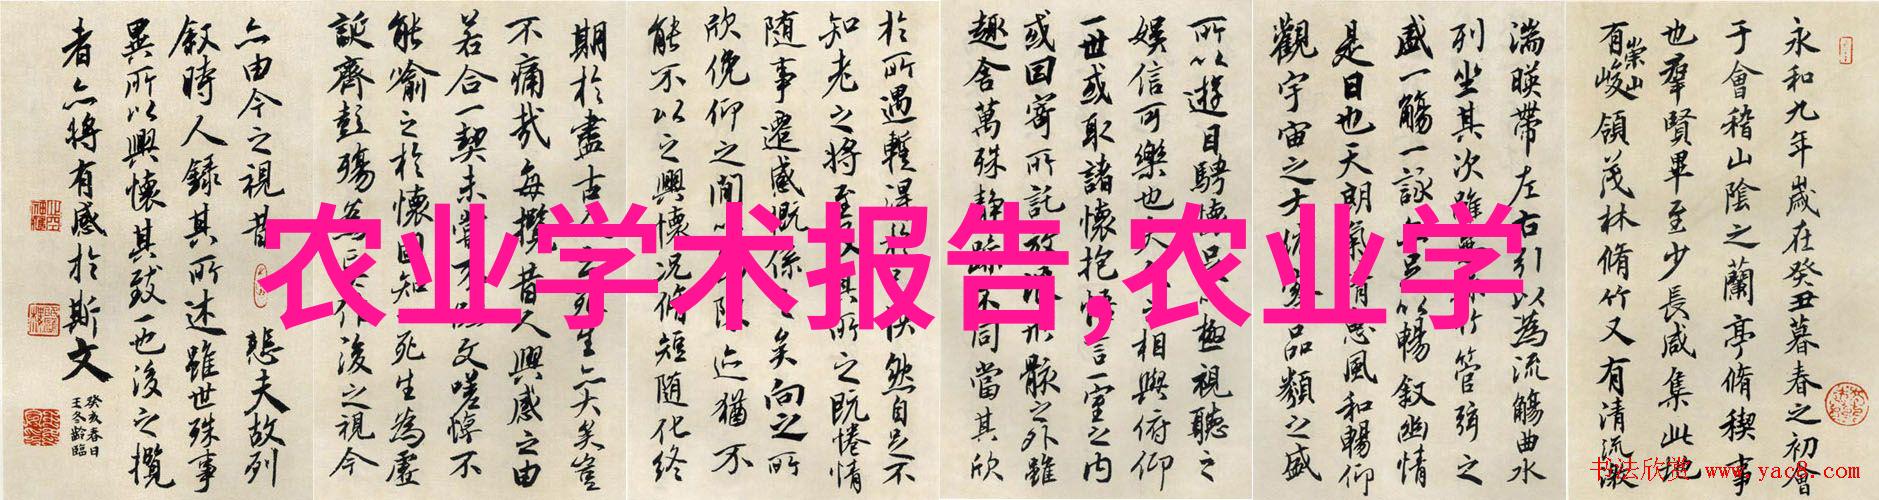 农业学术报告,农业学
永和九年歲在癸丑暮春之初會
于會稽山陰之蘭亭脩稧事
也羣賢畢至少長咸集此地
有崇山峻領茂林脩竹又有清流激
湍暎帶左右引以為流觴曲水
列坐其次雖無絲竹管弦之
盛一觴一詠亦足以暢敘幽情
是日也天朗氣清惠風和暢仰
觀宇宙之大俯察品類之盛
所以遊目騁懷足以極視聽之
娛信可樂也夫人之相與俯仰
一世或取諸懷抱悟言一室之内
或因寄所託放浪形骸之外雖
趣舍萬殊静躁不同當其欣
於所遇蹔得於己快然自足不
知老之將至及其所之既惓情
随事遷感慨係之矣向之所
欣俛仰之閒以為陳迹猶不
能不以之興懷况脩短随化終
期於盡古人云死生亦大矣豈
不痛哉每攬昔人興感之由
若合一契未嘗不臨文嗟悼不
能喻之於懷固知死生為虛
誕齊彭殤為妄作後之視今
亦由今之視昔悲夫故列
敘時人錄其所述雖世殊事
異所以興懷其致一也後之攬
者亦將有感於斯文
癸亥春日
王冬齡臨
书法欣赏 www.yac8.com